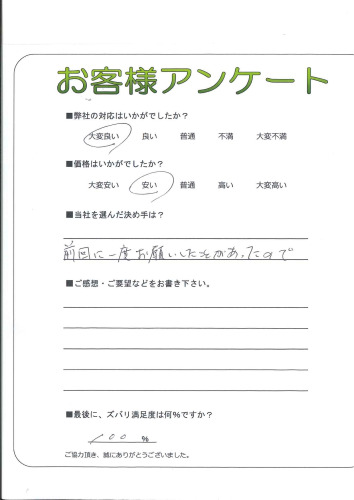 お客様アンケート
■弊社の対応はいかがでしたか？
大変良い 良い 普通 不満 大変不満
■価格はいかがでしたか？
大変安い 安い 普通 高い 大変高い
■当社を選んだ決め手は？
前回に一度お願いしたことがあったので
■ご感想・ご要望などをお書き下さい。
■最後に、ズバリ満足度は何％ですか？
100 ％
ご協力頂き、誠にありがとうございました。